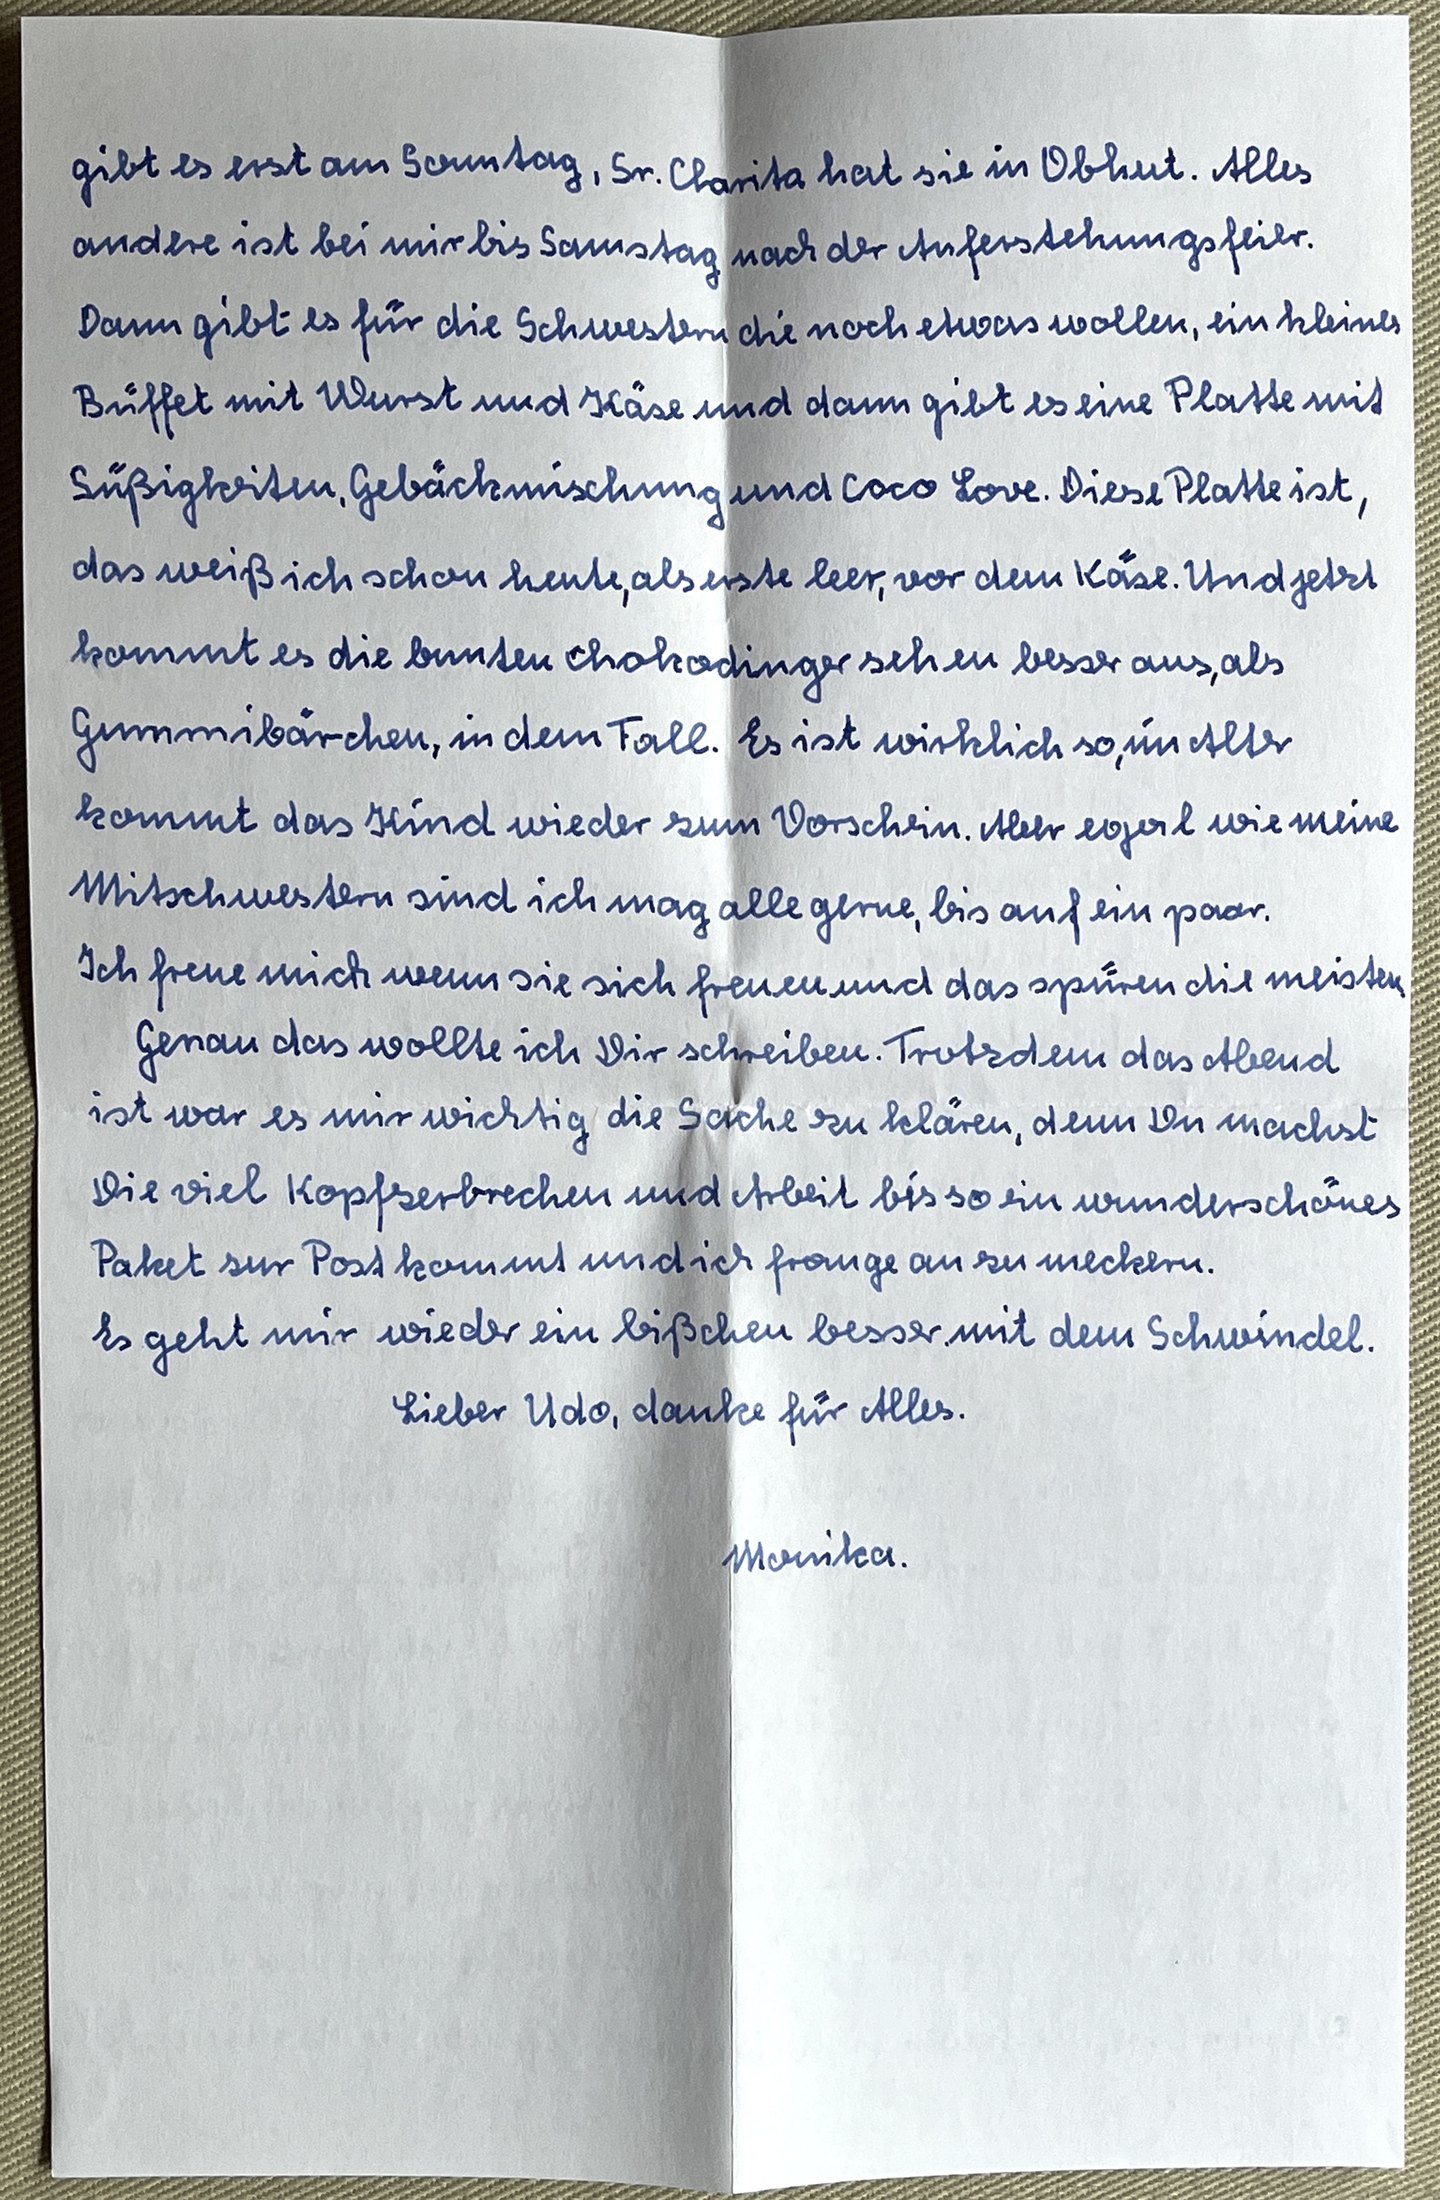 gibt es erst am Sonntag, Sr. Charita hat sie in Obhut. Alles
andere ist bei mir bis Samstag nach der Auferstehungsfeier.
Dann gibt es für die Schwestern die noch etwas wollen, ein kleines
Büffet mit Wurst und Käse und dann gibt es eine Platte mit
Süßigkeiten, Gebäckmischung und Coco Love. Diese Platte ist,
das weiß ich schon heute, als erste leer, vor dem Käse. Und jetzt
kommt es die bunten Chokodinger sehen besser aus, als
Gummibärchen, in dem Fall. Es ist wirklich so, im Alter
kommt das Kind wieder zum Vorschein. Aber egal wie meine
Mitschwestern sind ich mag alle gerne, bis auf ein paar.
Ich freue mich wenn sie sich freuen und das spüren die meisten
Genau das wollte ich Dir schreiben. Trotzdem das Abend
ist war es mir wichtig die Sache zu klären, denn Du machst
Die viel Kopfzerbrechen und Arbeit bis so ein wunderschönes
Paket zur Post kommt und ich fange an zu meckern.
Es geht mir wieder ein bißchen besser mit dem Schwindel.
Lieber Udo, danke für Alles.
Monika.